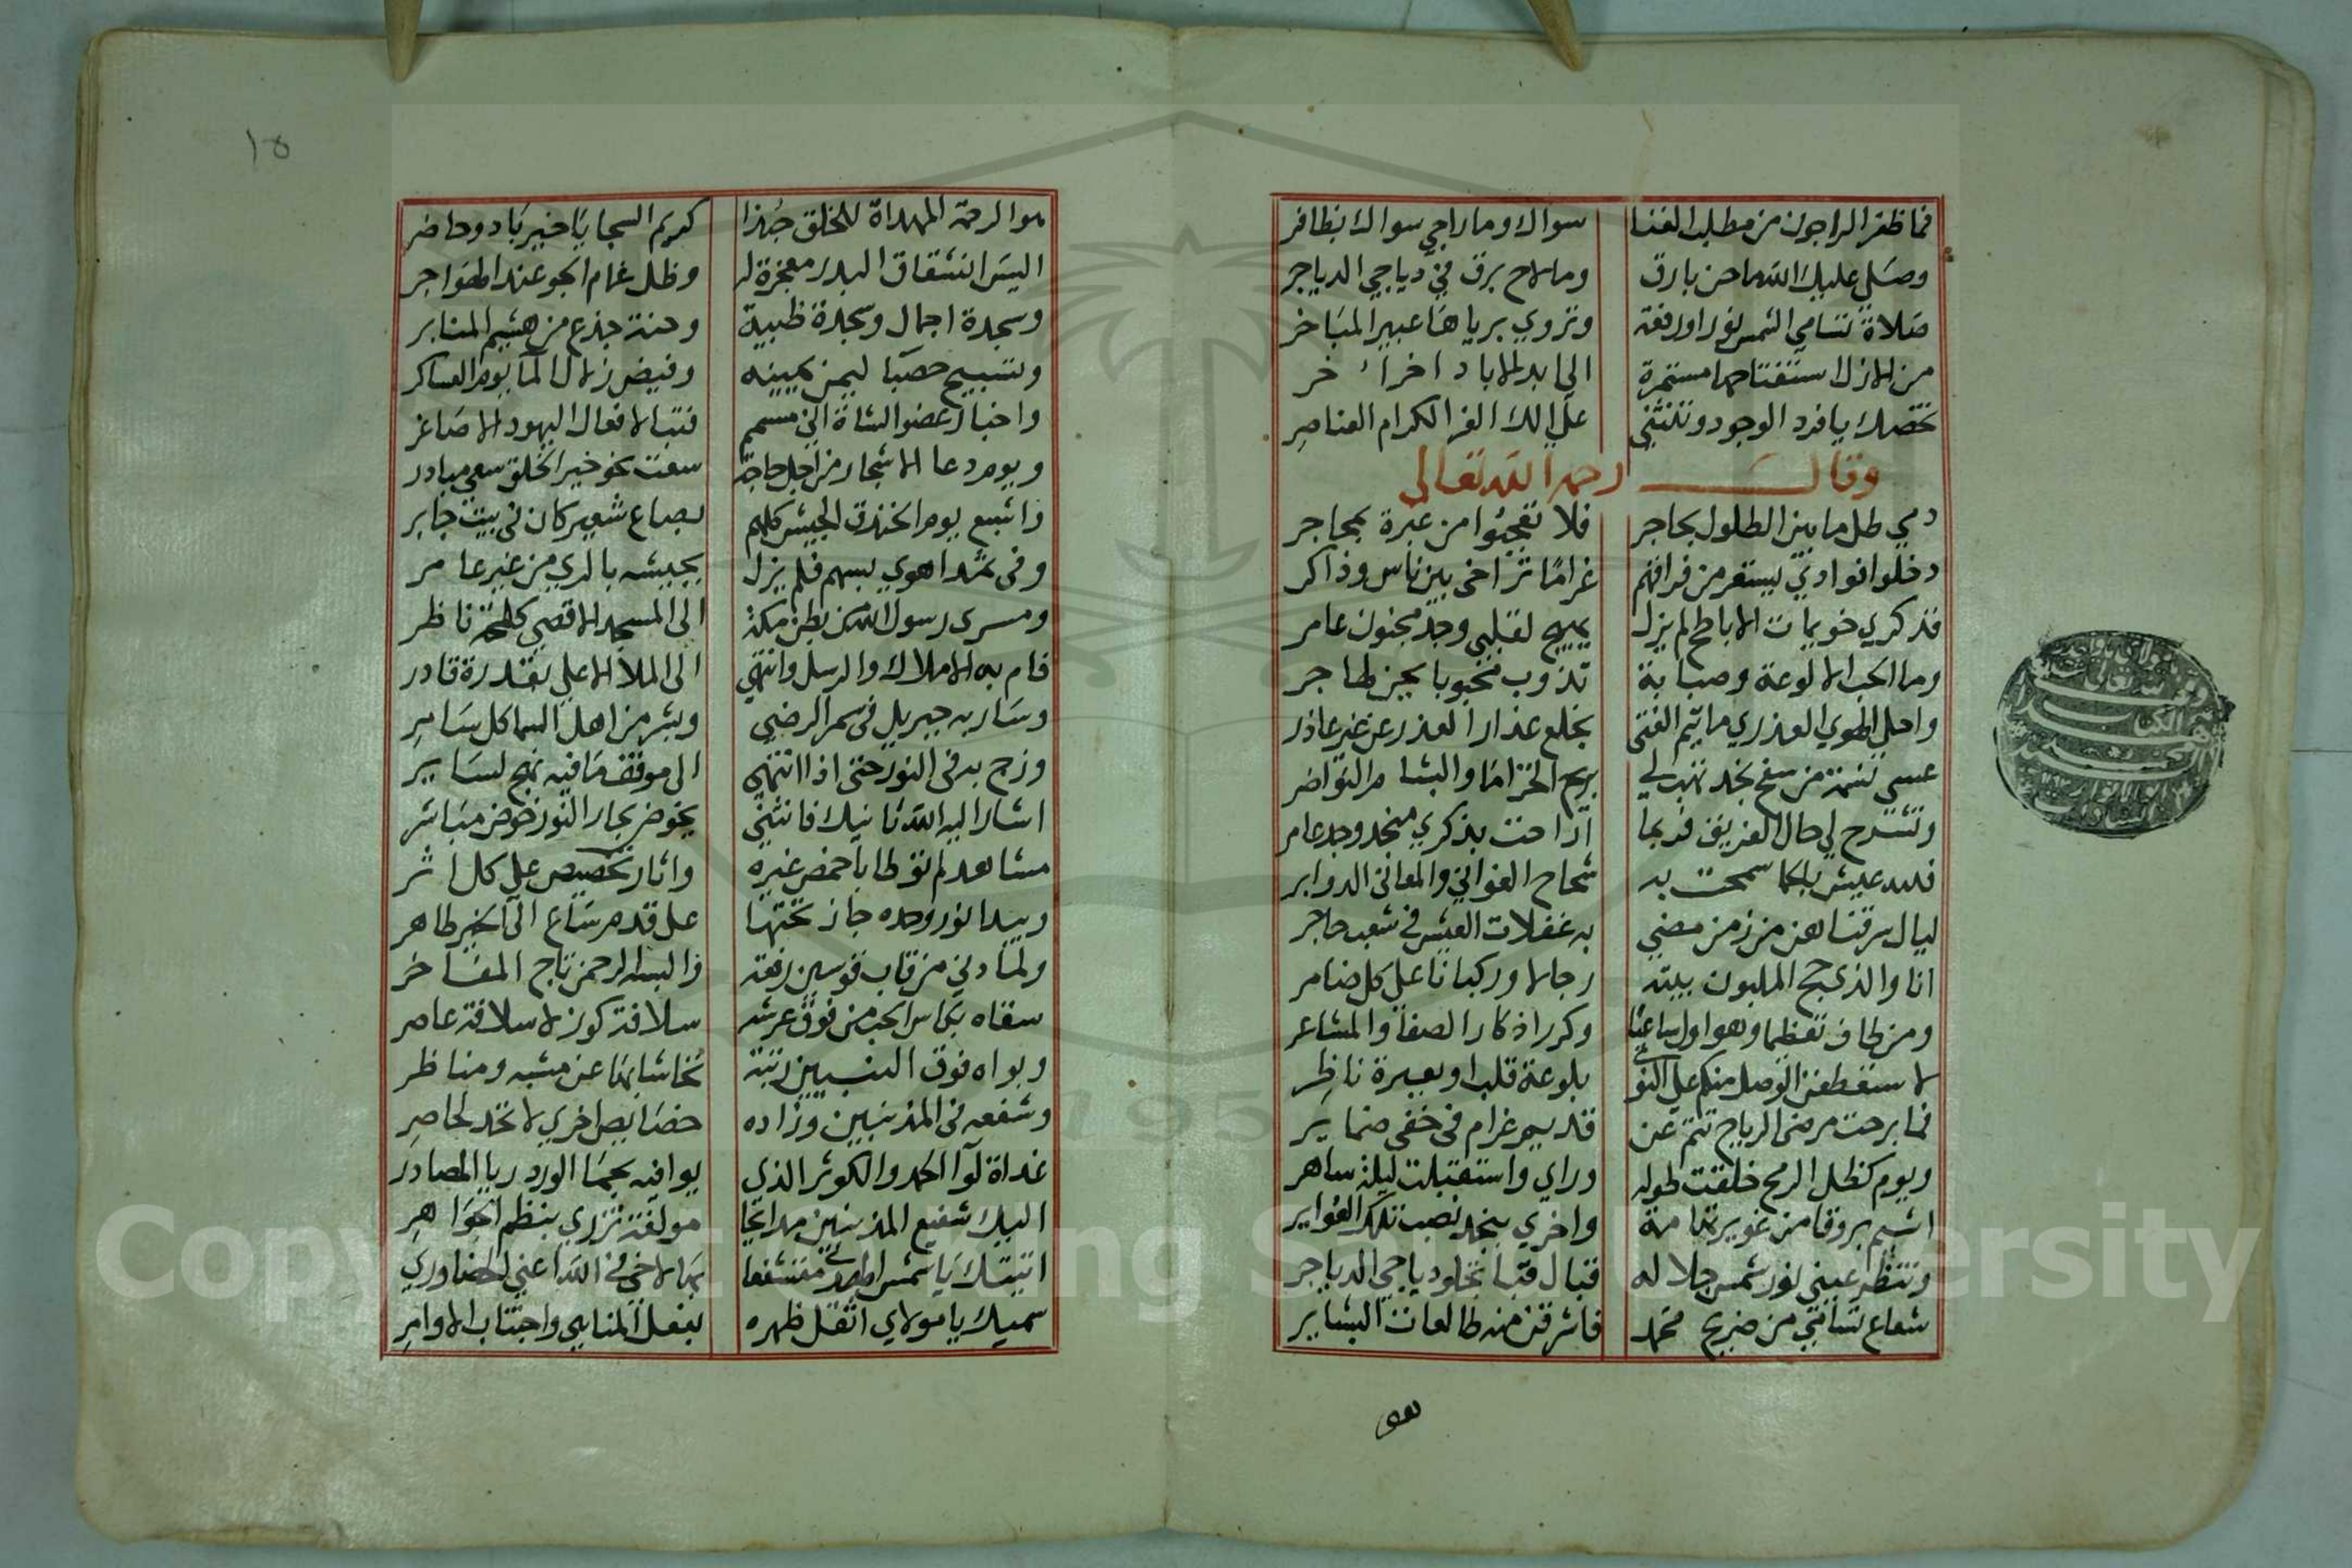 فما ظفر الراجون من مطلب الغنا سواك وما راجي سواك بظافر
وصلي عليك الله ما حن بارق وما لاح برق في دياجي الدياجر
صلاة تسامي الشمس نورا ورفعة وتزوي برياها عبير المباخر
من الازل استفتاحها مستمرة الى ابد الاباد اخرا خر
تخصك يا فرد الوجود وتنثني على الك الغر الكرام العناصر
وقال رحمه الله تعالى
دمي طل ما بين الطلول بحاجر فلا تعجبوا من عبرة بمحاجر
دخلوا فوادي يستعر من فراقهم غراما تراخى بين ناس وذاكر
فذكري خويمات الاباطح لم يزل يهيج لقلبي وجد مجنون عامر
وما الحب الا لوعة وصبابة تذوب محبوبا بحين هاجر
واحلى الهوي العذري ما تيم الفتى بخلع عذار العذر عن غير عاذر
عسى نسمة من سفح نجد تهب لي بريح الخزاما والبشام النواضر
وتشرح لي حال الفريق فربما اراحت بذكري منجد وجد عامر
فلله عيش بالحما سمحت به شحاح الغواني والمعاني الدوابر
ليال سرقناهن من زمن مضي به غفلات العيش في شعب حاجر
انا والذي حج الملبون بيته رجالا وركبانا على كل ضامر
ومن طاف تعظيما وهو اول ساعيا وكرر اذكار الصفا والمشاعر
لاستعطفن الوصل منكم على النوى بلوعة قلب او بعبرة ناظر
فما برحت مرضى الرياح تنم عن قديم غرام في خفى ضماير
ويوم كظل الرمح خلفت طوله وراي واستقبلت ليلة ساهر
اشيم بروقا من غوير تهامة واخري بنجد نصب تلك الغواير
وتنظر عيني نور شمس جلاله قبال قبا تجلو دياجي الدياجر
شعاع تسامى من ضريح محمد فاشرقن منه طالعات البشاير
هو
هو الرحمة المهداة للخلق جهزا كريم السجايا خير باد وحاضر
اليس انشقاق البدر معجزة له وظل غمام الجو عند الهواجر
وسجدة اجمال وسجدة ظبية وحنة جذع من هشيم المنابر
وتسبيح حصبا ليمن يمينه وفيض زلال الما يوم العساكر
واخبار عضو الشاة اني مسمم فتبا لافعال اليهود الاصاغر
ويوم دعا الاشجار من اجل حاجة سعت نحو خير الخلق سعي مبادر
واشبع يوم الخندق الجيش كلهم بصاع شعير كان في بيت جابر
وفي ثمد اهوي بسهم فلم يزل يجيشه بالري من غير عامر
ومسرى رسول الله من بطن مكة الى المسجد الاقصى كلمحة ناظر
فام به الاملاك والرسل وانتهي الى الملا الاعلي بقدرة قادر
وسار به جبريل في سمر الرضي وبشر من اهل السما كل سامر
وزج به في النور حتى اذا انتهى الى موقف ما فيه نهج لساير
اشار اليه الله ثانيك فانثني يخوض بحار النور خوض مباشر
مشاهد لم توطا باخمص غيره واثار تخصيص على كل اثر
وبيدا نور وحده جاز تختها على قدم ساع الى الخير طاهر
ولما دني من قاب قوسين رفعة والبسه الرحمن تاج المفاخر
سقاه بكاس الحب من فوق عرشه سلافة كوز لا سلافة عاصر
وبواه فوق النبيين رتبة تحاشا بها عن مشبه ومناظر
وشفعه في المذنبين وزاده خصايص اخري لا تحد لحاصر
غداة لوا الحمد والكوثر الذي يوافيه بحما الورد ريا المصادر
اليك شفيع المذنبين مدايحا مولفة تزري بنظم الجواهر
اتيتك يا شمس الهدى متشفعا بها لاخي في الله اعني
سميك يا مولاي اثقل ظهره بفعل المناهي واجتناب الاوامر
١٥
Copyright © King Saud University
195